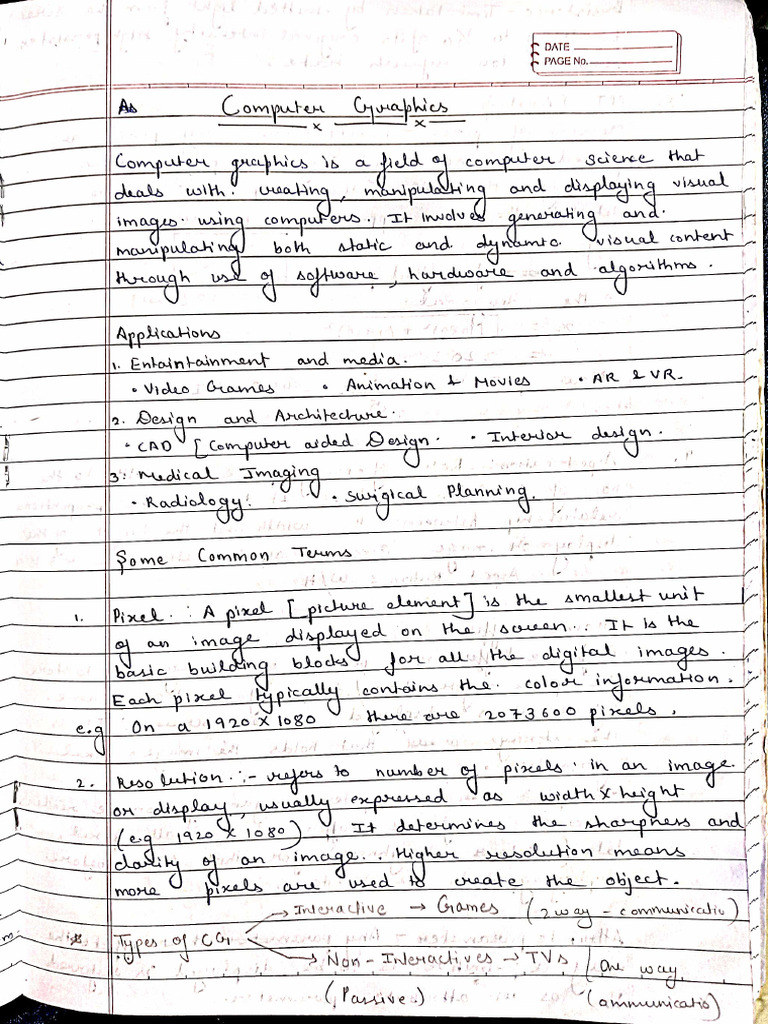 DATE
PAGE No.
As Computer Graphics
Computer graphics is a field of computer science that
deals with creating, manipulating and displaying visual
images using computers. It involves generating and
manipulating both static and dynamic visual content
through use of software, hardware and algorithms.
Applications
1. Entaintainment and media.
• Video Games • Animation & Movies • AR & VR.
2. Design and Architecture.
• CAD [Computer aided Design. • Interior design.
3. Medical Imaging
• Radiology. • Surgical Planning.
Some Common Terms
1. Pixel : A pixel [picture element] is the smallest unit
of an image displayed on the screen. It is the
basic building blocks for all the digital images.
Each pixel typically contains the color information.
e.g On a 1920 X 1080 there are 2073600 pixels.
2. Resolution :- refers to number of pixels in an image
or display, usually expressed as width x height
(e.g 1920 X 1080). It determines the sharpness and
clarity of an image. Higher resolution means
more pixels are used to create the object.
Types of CG → Interactive → Games (2 way - communicatio)
→ Non-Interactives → TVs (One way
(Passive) communicatio)